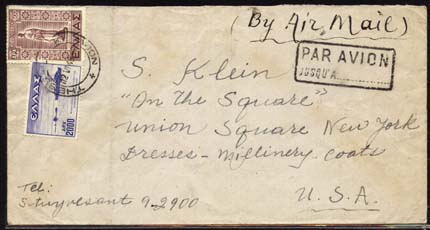 (By Air Mail)
ΕΛΛΑΣ
PAR AVION
JUSQU'A
AVION * THES
ΕΛΛΑΣ
ΔΡΧ 2000
S. Klein
"On The Square"
Union Square New York
Dresses - Millinery - Coats
U.S.A.
Tel:
Stuyvesant 9-2900